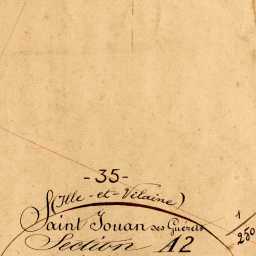 - 35 -
(Ille - et - Vilaine)
Saint Jouan des Guérets
Section A2
1
250